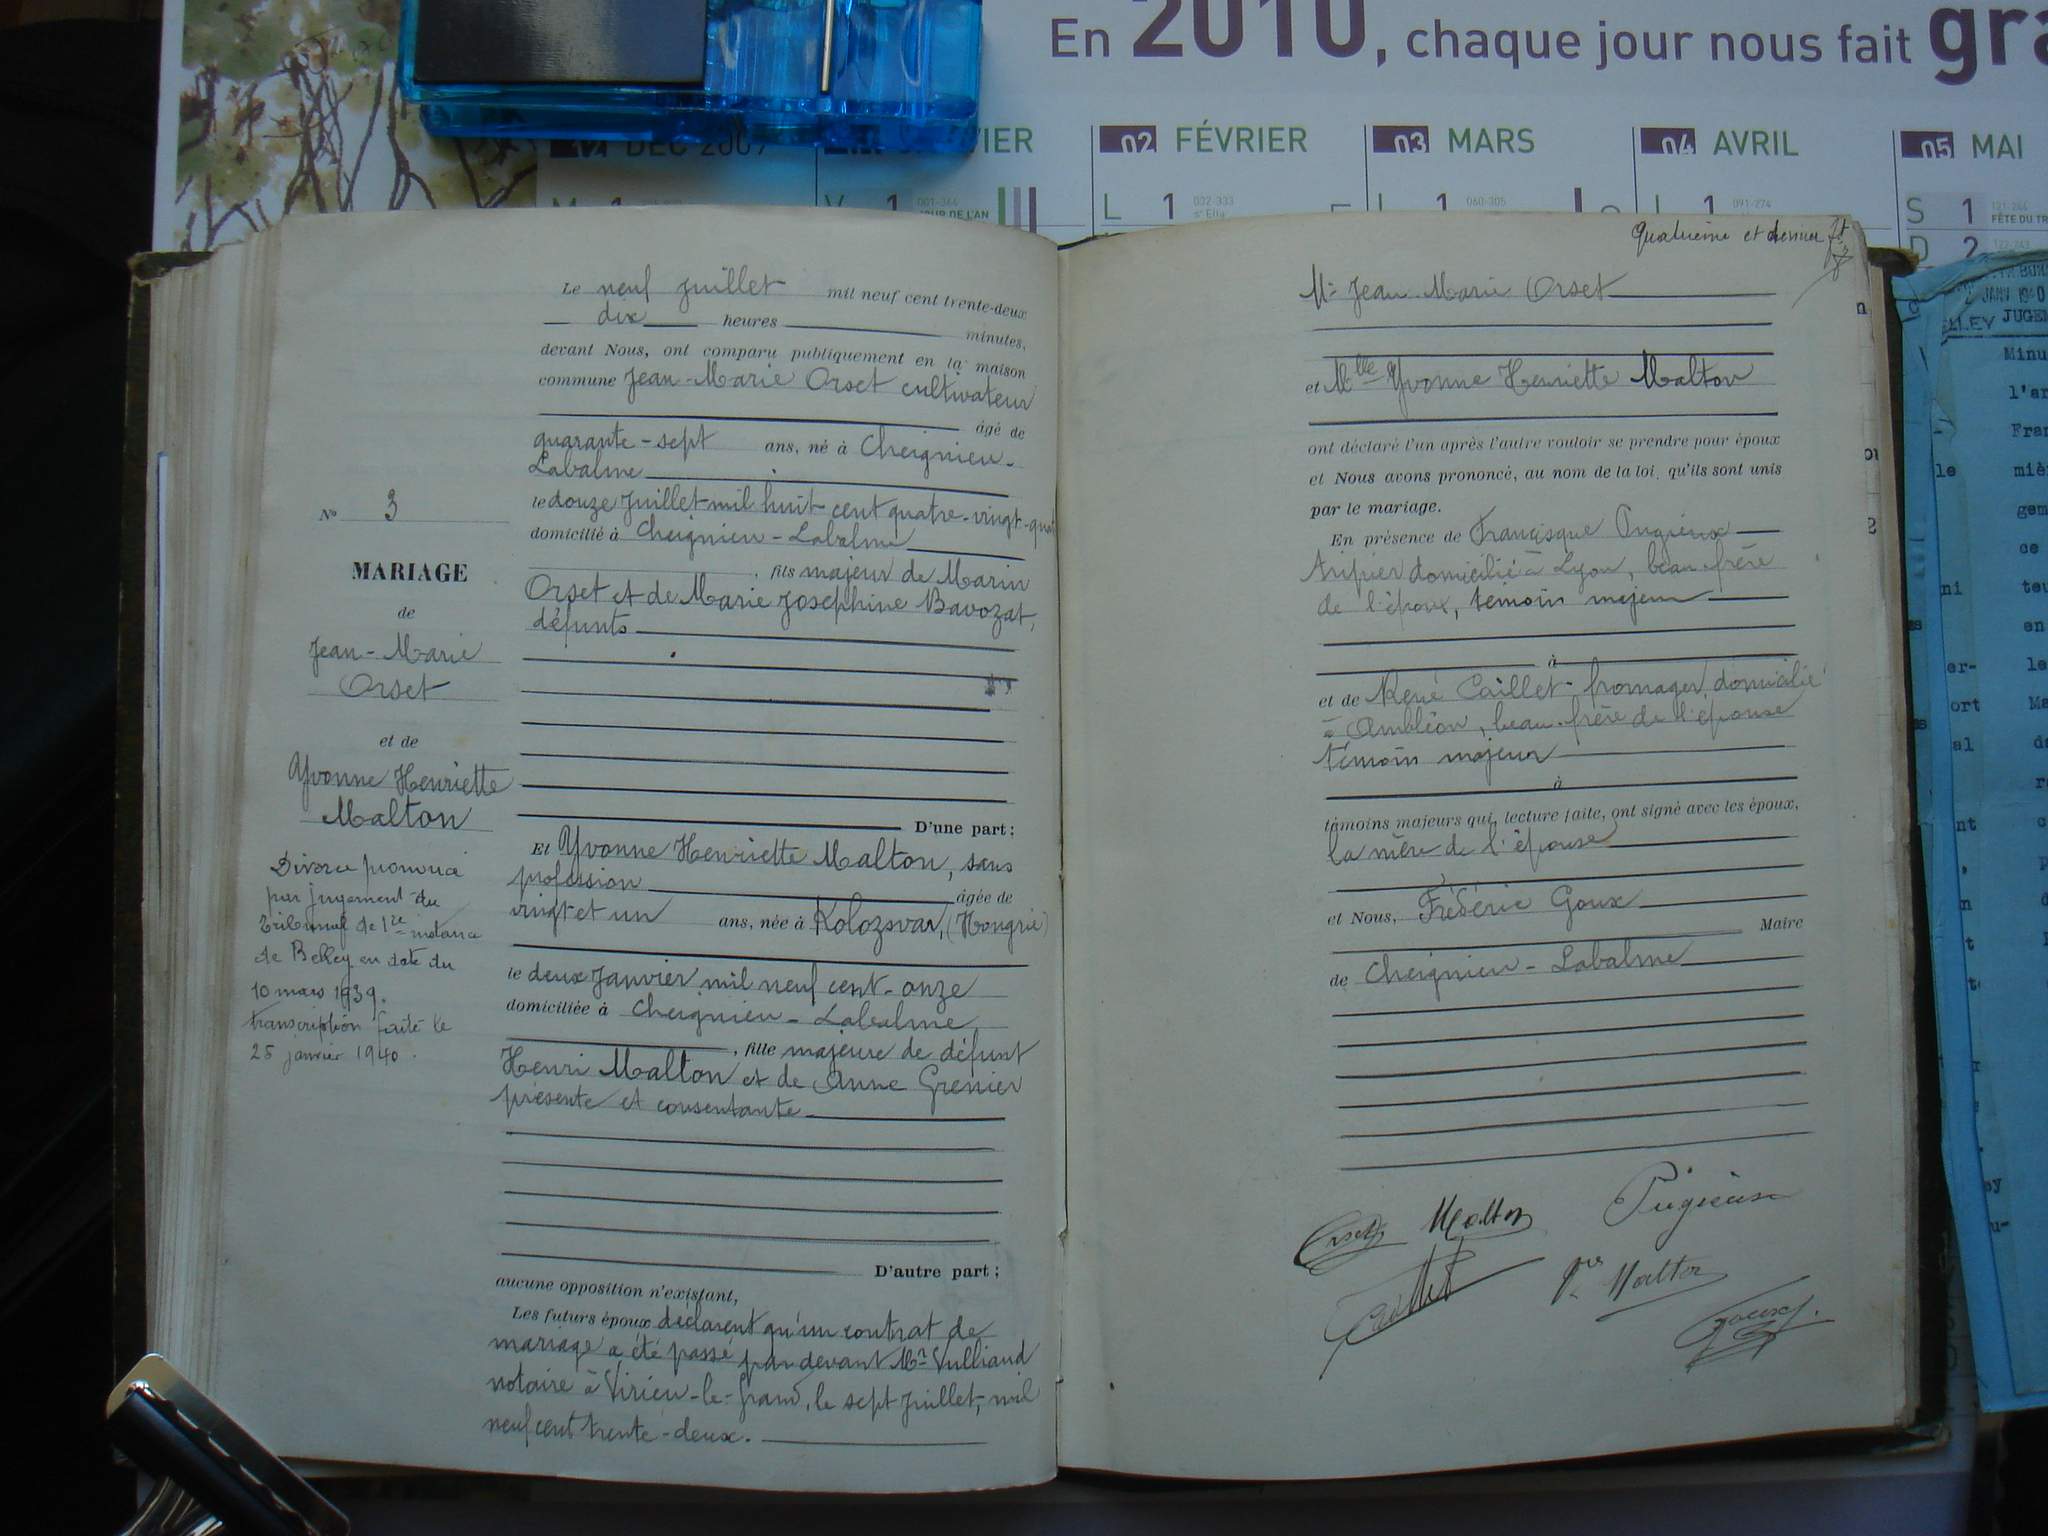 En 2010, chaque jour nous fait gra
DÉC 2009
VIER
02 FÉVRIER
03 MARS
04 AVRIL
05 MAI
001-364
JOUR DE L'AN
L 1 032-333
Ste Ella
L 1 060-305
1 091-274
S 1 121-244
FÊTE DU TR
D 2
Le neuf juillet mil neuf cent trente-deux
dix heures minutes,
devant Nous, ont comparu publiquement en la maison
commune Jean-Marie Orset cultivateur
âgé de
quarante-sept ans, né à Cheignieu-
Labalme
le douze juillet mil huit cent quatre-vingt-quat
domicilié à Cheignieu-Labalme
, fils majeur de Marin
Orset et de Marie Josephine Bavozat,
défunts
D'une part ;
Et Yvonne Henriette Malton, sans
profession âgée de
vingt et un ans, née à Kolozsvar, (Hongrie)
le deux Janvier mil neuf cent-onze
domiciliée à Cheignieu-Labalme
, fille majeure de défunt
Henri Malton et de Anne Grenier
présente et consentante
D'autre part ;
aucune opposition n'existant,
Les futurs époux déclarent qu'un contrat de
mariage a été passé par devant Me Vulliaud
notaire à Virieu-le-Grand, le sept Juillet, mil
neuf cent trente-deux.
No 3
MARIAGE
de
Jean-Marie
Orset
et de
Yvonne Henriette
Malton
Divorce prononcé
par jugement du
Tribunal de 1re instance
de Belley en date du
10 mars 1939.
transcription faite le
25 janvier 1940.
Quatrième et dernier ft
Mr Jean Marie Orset
et Mlle Yvonne Henriette Malton
ont déclaré l'un après l'autre vouloir se prendre pour époux
et Nous avons prononcé, au nom de la loi, qu'ils sont unis
par le mariage.
En présence de Francisque Pugieux
domicilié à Lyon, beau-frère
de l'époux, témoin majeur
à
et de René Caillet fromager, domicilié
à Ambléon, beau-frère de l'épouse
témoin majeur
à
témoins majeurs qui, lecture faite, ont signé avec les époux,
la mère de l'épouse
et Nous, Frédéric Goux
Maire
de Cheignieu-Labalme
Orset Malton Pugieux
Caillet Vve Malton
Goux
JANV 1940
LLEY JUGE
Minu
l'ar
le
Fran
miè
gem
ce
ni
teu
en
er-
le
ort
Ma
al
nt